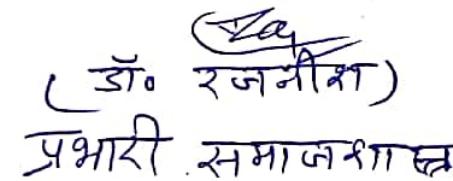 (डॉ० रजनीश)
प्रभारी समाजशास्त्र